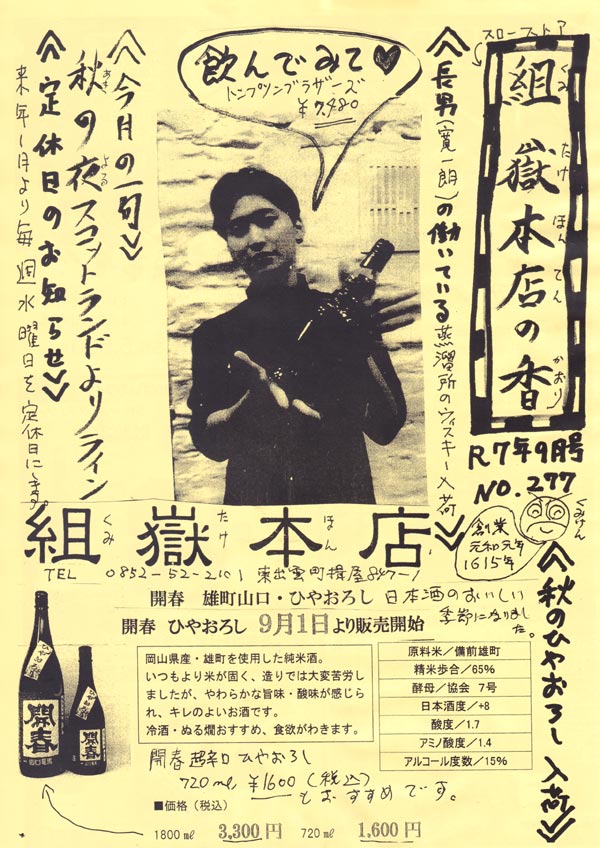 スローストア
組嶽本店の香
くみ たけ ほん てん かおり
R7年9月号
NO.277
くみけん
創業
元和元年
1615年
≪秋のひやおろし入荷≫
≪長男(寛一朗)の働いている蒸溜所のウィスキー入荷≫
飲んでみて♥
トンプソンブラザーズ
¥7,480
≪今月の一句≫
秋の夜スコットランドよりライン
あき よる
≪定休日のお知らせ≫
来年1月より毎週水曜日を定休日にします。
組嶽本店
くみ たけ ほん
TEL 0852-52-2101 東出雲町揖屋847-1
開春 雄町山口・ひやおろし 日本酒のおいしい
季節になりました。
開春 ひやおろし 9月1日より販売開始
岡山県産・雄町を使用した純米酒。
いつもより米が固く、造りでは大変苦労し
ましたが、やわらかな旨味・酸味が感じら
れ、キレのよいお酒です。
冷酒・ぬる燗おすすめ、食欲がわきます。
原料米／備前雄町
精米歩合／65%
酵母／協会 7号
日本酒度／+8
酸度／1.7
アミノ酸度／1.4
アルコール度数／15%
開春
ひやおろし
開春
ひやおろし
開春 超辛口 ひやおろし
720ml ¥1600(税込)
もおすすめです。
■価格（税込）
1800㎖ 3,300円 720㎖ 1,600円